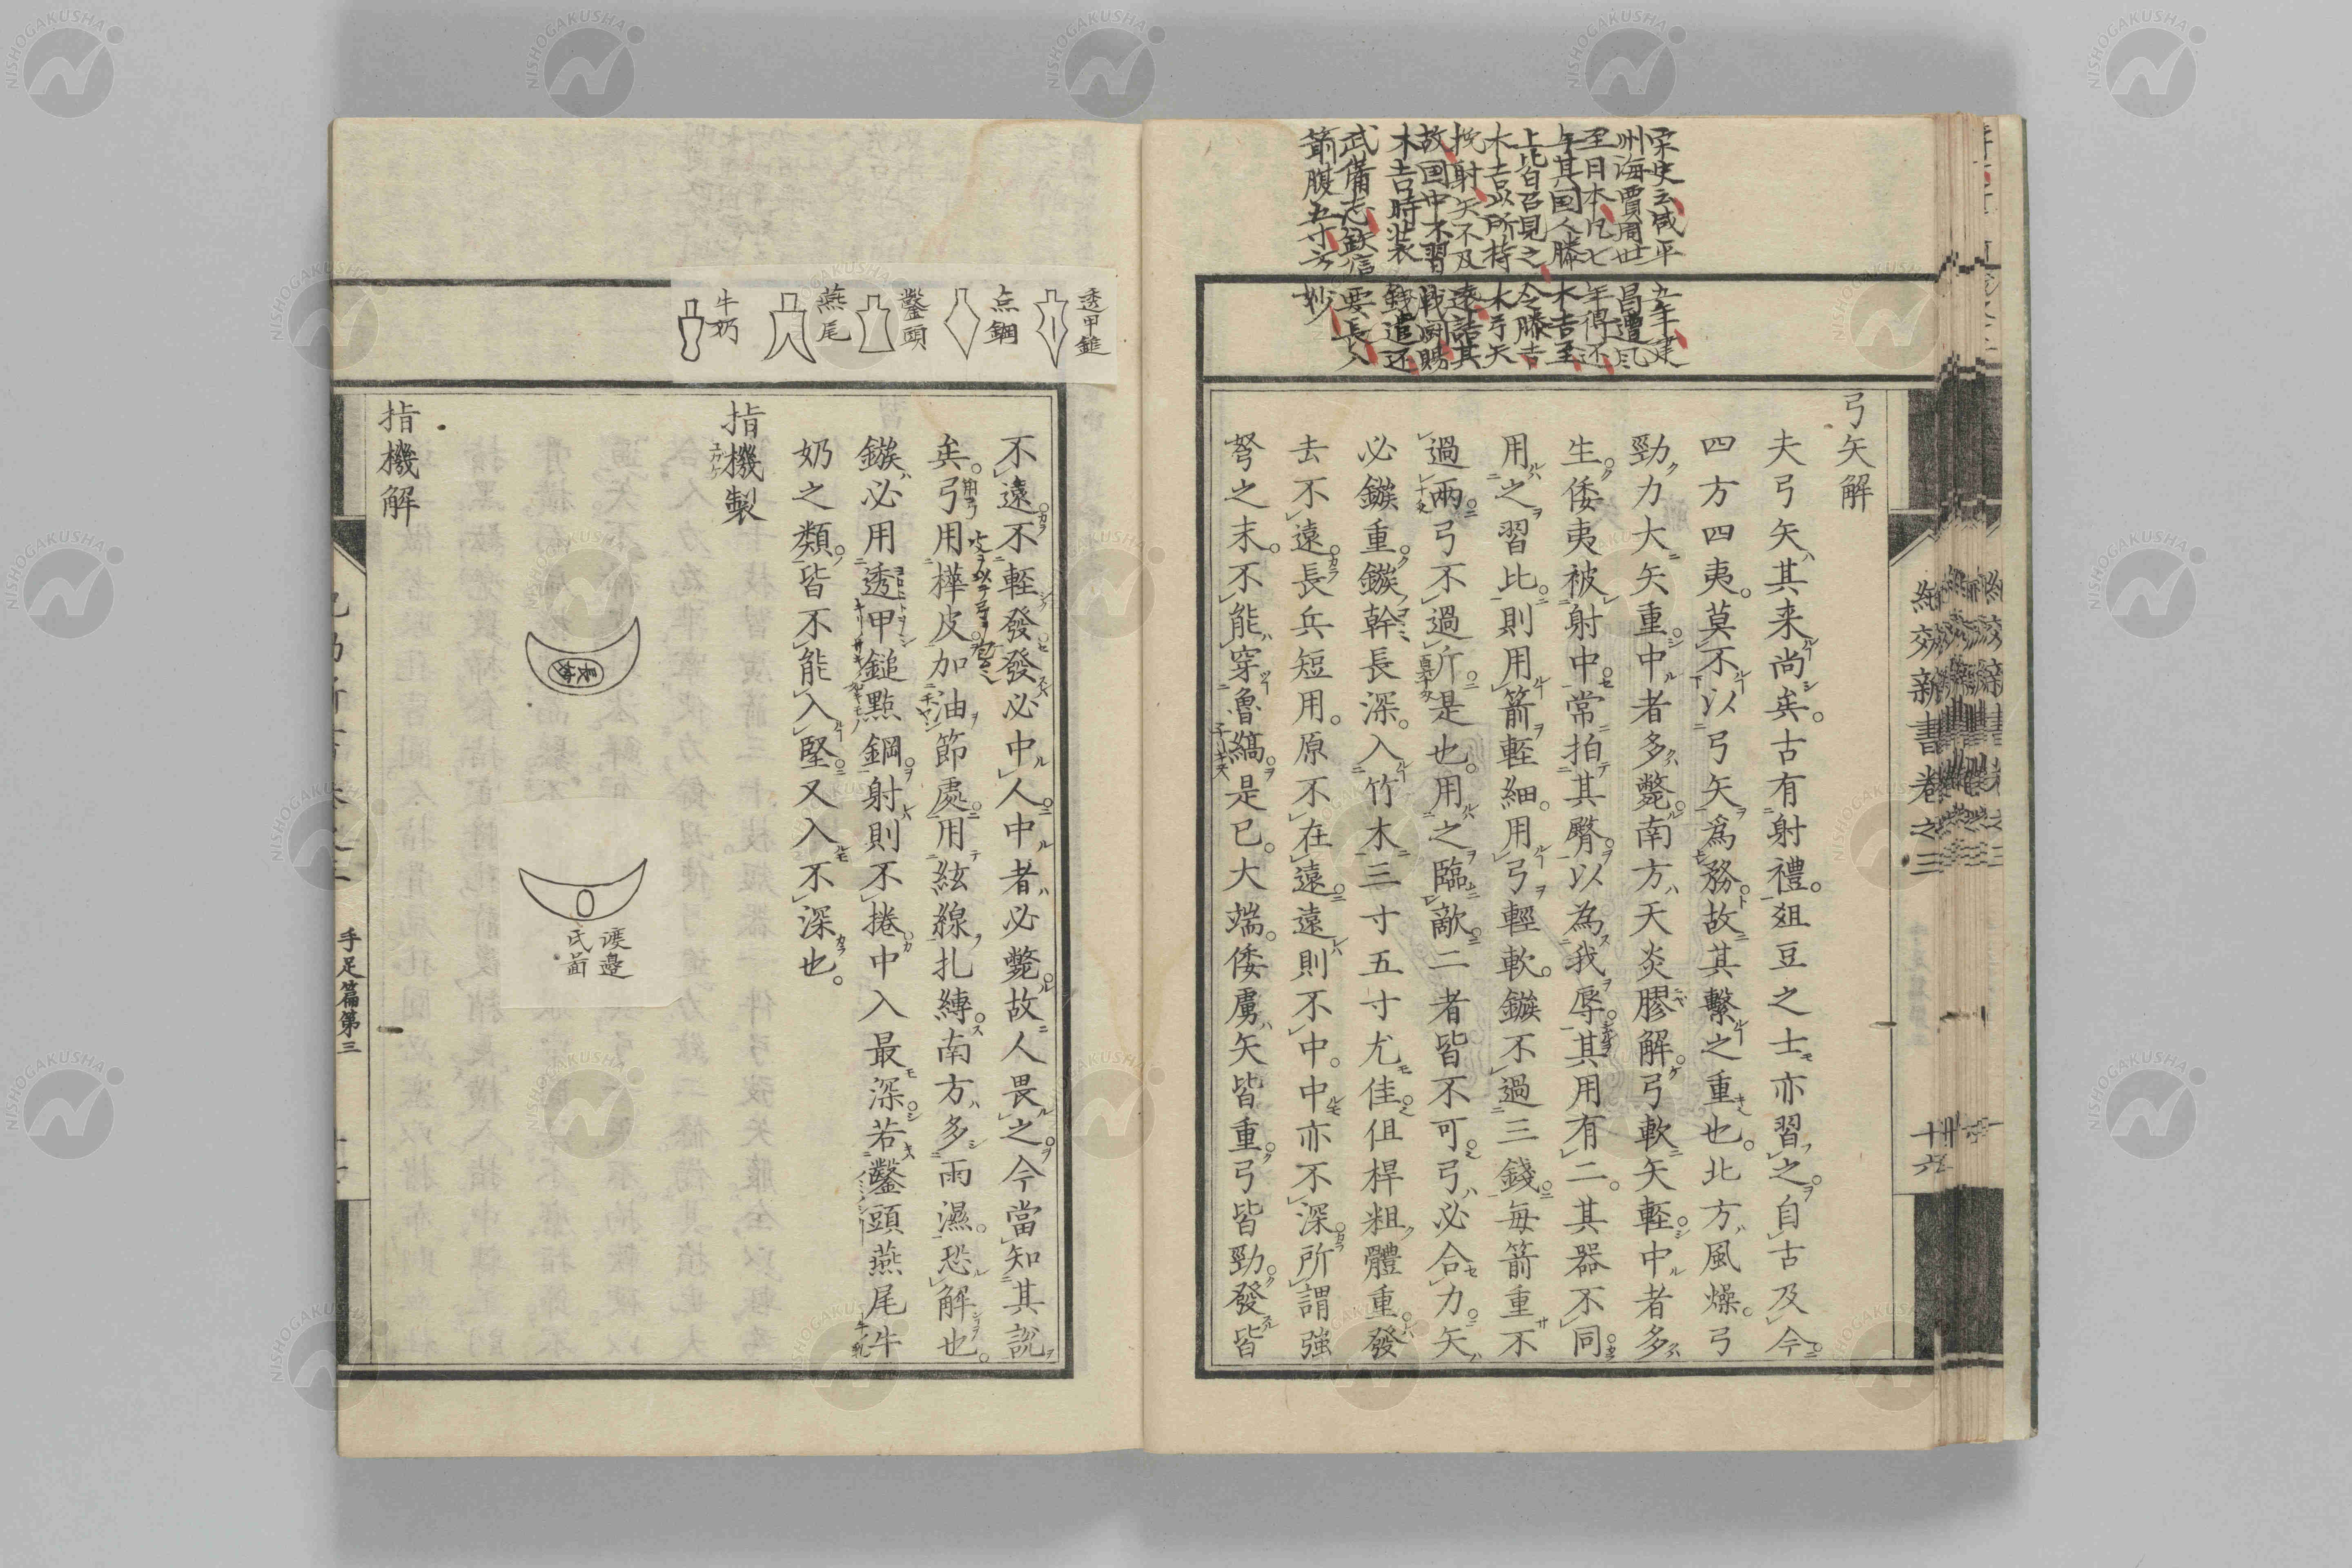 宋史云咸平五年建
州海賈周世昌遭風
至日本凡七年得还
与其国人滕木吉至
上皆召見之令滕吉
木吉以所持木弓矢
挽射矢不及遠詰其
故国中不習戦闘賜
木吉時装錢遣还
武備志鉄信要長
箭腹五寸方妙
弓矢解
夫弓矢其来尚矣。古有射禮。爼豆之士亦習之。自古及今
四方四夷。莫不以弓矢爲務故其繫之重也。北方風燥。弓
勁力大矢重中者多斃南方天炎膠解弓軟矢輕中者多
生。倭夷被射中常拍其臀以為我辱其用有二。其器不同
用之習比則用箭輕細。用弓輕軟。鏃不過三錢每箭重不
過兩弓不過斤是也。用之臨敵二者皆不可弓必合力矢
必鏃重鏃幹長深。入竹木三寸五寸尤佳但桿粗體重發
去不遠長兵短用。原不在遠遠則不中。中亦不深所謂強
弩之末。不能穿魯縞是已。大端。倭虜矢皆重。弓皆勁發皆
紀效新書卷之三
十六
透甲鎚
点鋼
鑿頭
燕尾
牛奶
不遠不輕發發必中人中者必斃故人畏之今當知其說
矣。弓用樺皮加油節處用絃線扎縛南方多雨濕。恐解也。
鏃必用透甲鎚點鋼射則不捲中入最深若鑿頭燕尾牛
奶之類皆不能入堅又入不深也。
指機製
渡邉
氏啚
指機解
手足篇第三
NISHOGAKUSHA